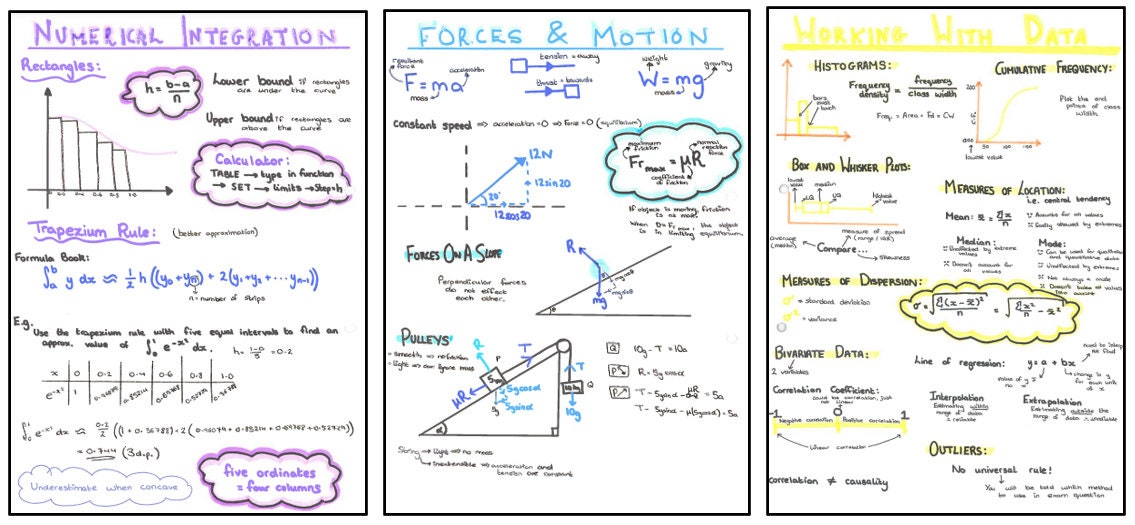 NUMERICAL INTEGRATION
Rectangles:
h = b-a/n
Lower bound if rectangles
are under the curve
Upper bound if rectangles are
above the curve
Calculator:
TABLE → type in function
→ SET → limits → step=h
Trapezium Rule: (better approximation)
Formula Book:
∫ₐᵇ y dx ≈ ½ h ((y₀ + yₙ) + 2(y₁+y₂ + ... yₙ₋₁))
n = number of strips
E.g.
Use the trapezium rule with five equal intervals to find an
approx. value of ∫₀¹ e^-x² dx.
h = 1-0/5 = 0.2
x 0 0.2 0.4 0.6 0.8 1.0
e^-x² 1 0.96079 0.85214 0.69768 0.52729 0.36788
∫₀¹ e^-x² dx ≈ 0.2/2 ((1 + 0.36788) + 2(0.96079 + 0.85214 + 0.69768 + 0.52729))
= 0.744 (3d.p.)
Underestimate when concave
five ordinates
= four columns
FORCES & MOTION
resultant force
acceleration
F = ma
mass
tension = away
thrust = towards
weight
gravity
W = mg
mass
constant speed ⇒ acceleration = 0 ⇒ Force = 0 (equilibrium)
12N
12sin20
20°
12cos20
maximum friction
normal reaction force
Fr max = μR
coefficient of friction
If object is moving, friction
is at max
When D = Fr max, the object
is in limiting equilibrium.
FORCES ON A SLOPE
Perpendicular forces
do not effect
each other.
R
mg
θ
PULLEYS
- smooth ⇒ no friction
- light ⇒ can ignore mass
R
P
T
T
5kg
μR
5gcosα
5gsinα
5g
α
Q
10g
Q 10g - T = 10a
P R = 5gcosα
P T - 5gsinα - μR = 5a
T - 5gsinα - μ(5gcosα) = 5a
String → Light ⇒ no mass
→ Inextensible ⇒ acceleration and
tension are constant
WORKING WITH DATA
HISTOGRAMS:
bars must touch
Frequency density = frequency/class width
Freq. = Area = Fd × CW
CUMULATIVE FREQUENCY:
200
C.F.
50
100
lowest value
Plot the end
points of class
widths.
BOX AND WHISKER PLOTS:
lowest value
median
LQ
UQ
highest value
average (median)
measure of spread
(range / IQR)
Compare...
skewness
MEASURES OF LOCATION:
i.e. central tendency
Mean: x̄ = Σx/n
Accounts for all values
Easily skewed by extremes
Median:
Unaffected by extreme
values
Doesn't account for
all values
Mode:
Can be used for qualitative
and quantitative data
Unaffected by extremes
Not always a mode
Doesn't take all values
into account
MEASURES OF DISPERSION:
σ = standard deviation
σ² = variance
σ = √Σ(x - x̄)²/n = √Σx²/n - x̄²
BIVARIATE DATA:
2 variables
Line of regression: y = a + bx
change in y
for each unit
of x
Correlation Coefficient:
could be correlation, just
not linear
-1 0 1
Negative correlation Positive correlation
Linear correlation
correlation ≠ causality
Interpolation
Estimating within
range of data
= reliable
Extrapolation
Estimating outside the
range of data = unreliable
OUTLIERS:
No universal rule!
You will be told which method
to use in exam question